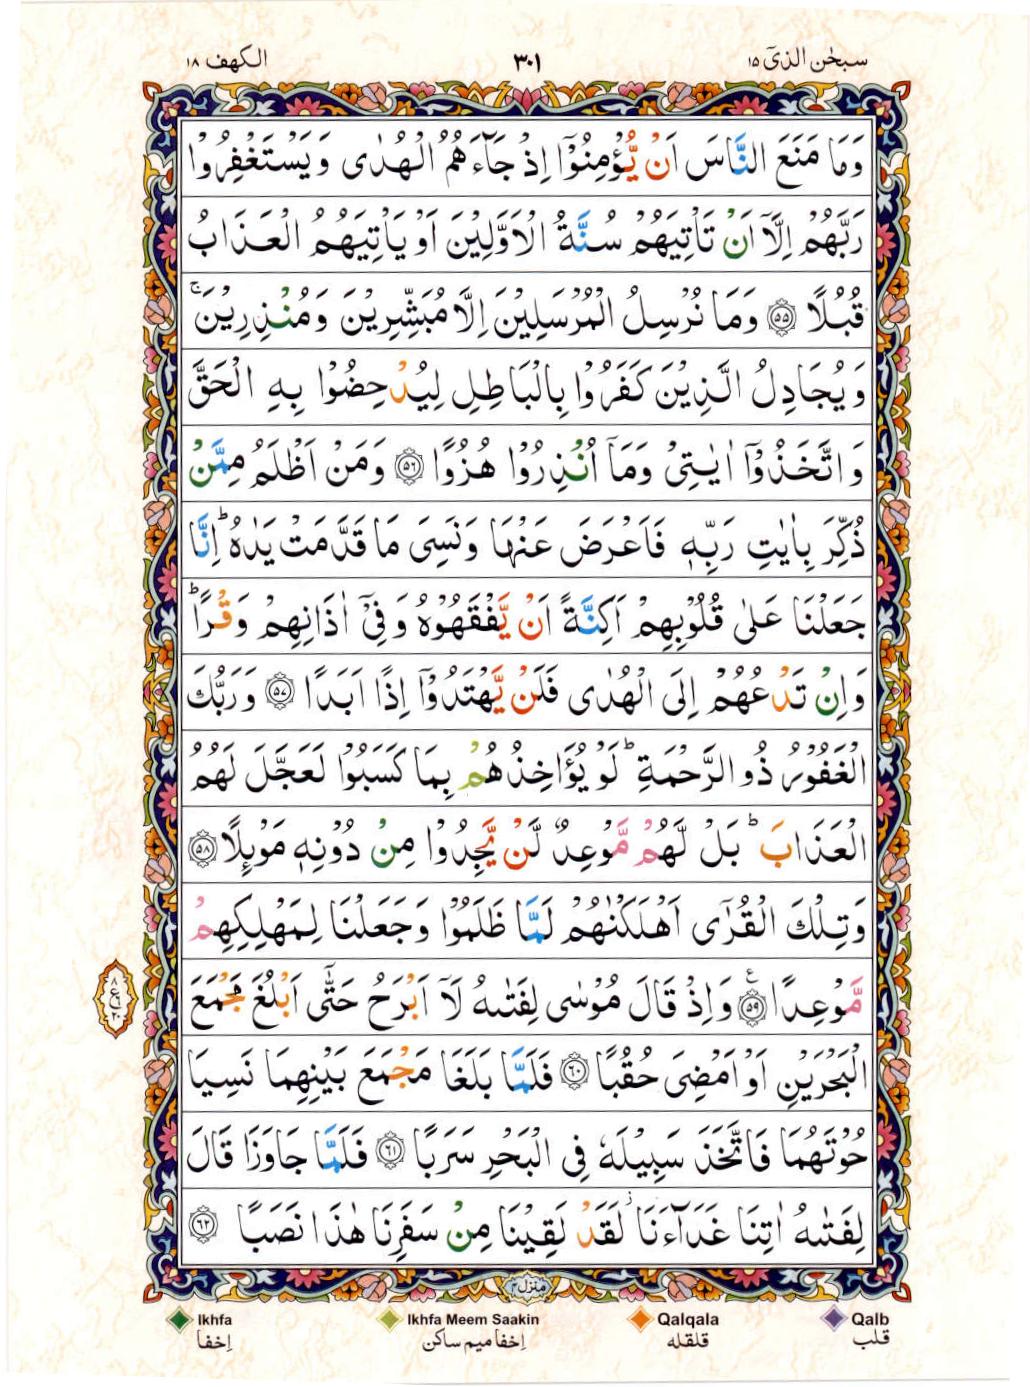 سبحٰن الذیۤ ۱۵
۳۰۱
الکهف ۱۸
وَمَا مَنَعَ النَّاسَ اَنْ يُّؤْمِنُوْٓا اِذْ جَآءَهُمُ الْهُدٰى وَيَسْتَغْفِرُوْا
رَبَّهُمْ اِلَّآ اَنْ تَاْتِيَهُمْ سُنَّةُ الْاَوَّلِيْنَ اَوْ يَاْتِيَهُمُ الْعَذَابُ
قُبُلًا ۝۵۵ وَمَا نُرْسِلُ الْمُرْسَلِيْنَ اِلَّا مُبَشِّرِيْنَ وَمُنْذِرِيْنَ ۚ
وَيُجَادِلُ الَّذِيْنَ كَفَرُوْا بِالْبَاطِلِ لِيُدْحِضُوْا بِهِ الْحَقَّ
وَاتَّخَذُوْٓا اٰيٰتِيْ وَمَآ اُنْذِرُوْا هُزُوًا ۝۵۶ وَمَنْ اَظْلَمُ مِمَّنْ
ذُكِّرَ بِاٰيٰتِ رَبِّهٖ فَاَعْرَضَ عَنْهَا وَنَسِيَ مَا قَدَّمَتْ يَدٰهُ ؕ اِنَّا
جَعَلْنَا عَلٰى قُلُوْبِهِمْ اَكِنَّةً اَنْ يَّفْقَهُوْهُ وَفِيْٓ اٰذَانِهِمْ وَقْرًا ؕ
وَاِنْ تَدْعُهُمْ اِلَى الْهُدٰى فَلَنْ يَّهْتَدُوْٓا اِذًا اَبَدًا ۝۵۷ وَرَبُّكَ
الْغَفُوْرُ ذُو الرَّحْمَةِ ؕ لَوْ يُؤَاخِذُهُمْ بِمَا كَسَبُوْا لَعَجَّلَ لَهُمُ
الْعَذَابَ ؕ بَلْ لَّهُمْ مَّوْعِدٌ لَّنْ يَّجِدُوْا مِنْ دُوْنِهٖ مَوْىِٕلًا ۝۵۸
وَتِلْكَ الْقُرٰٓى اَهْلَكْنٰهُمْ لَمَّا ظَلَمُوْا وَجَعَلْنَا لِمَهْلِكِهِمْ
مَّوْعِدًا ۝۵۹ ع وَاِذْ قَالَ مُوْسٰى لِفَتٰىهُ لَآ اَبْرَحُ حَتّٰٓى اَبْلُغَ مَجْمَعَ
۸ ع ۲۰
الْبَحْرَيْنِ اَوْ اَمْضِيَ حُقُبًا ۝۶۰ فَلَمَّا بَلَغَا مَجْمَعَ بَيْنِهِمَا نَسِيَا
حُوْتَهُمَا فَاتَّخَذَ سَبِيْلَهٗ فِي الْبَحْرِ سَرَبًا ۝۶۱ فَلَمَّا جَاوَزَا قَالَ
لِفَتٰىهُ اٰتِنَا غَدَآءَنَا ؗ لَقَدْ لَقِيْنَا مِنْ سَفَرِنَا هٰذَا نَصَبًا ۝۶۲
منزل ۴
Ikhfa Ikhfa Meem Saakin Qalqala Qalb
اِخفا اِخفا میم ساکن قلقله قلب